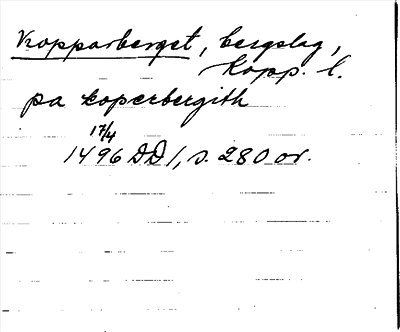 Kopparberget, bergslag,
Kopp. l.
pa koperbergith
17/4
1496 DD 1, s. 280 or.